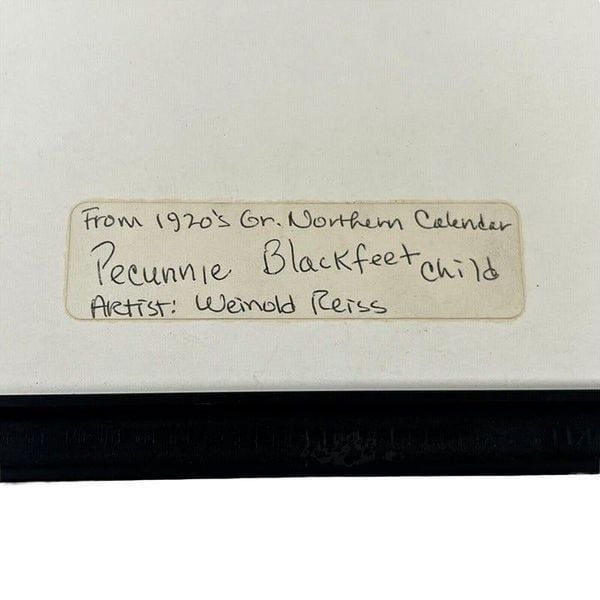 From 1920's Gr. Northern Calendar
Pecunnie Blackfeet child
Artist: Weinold Reiss